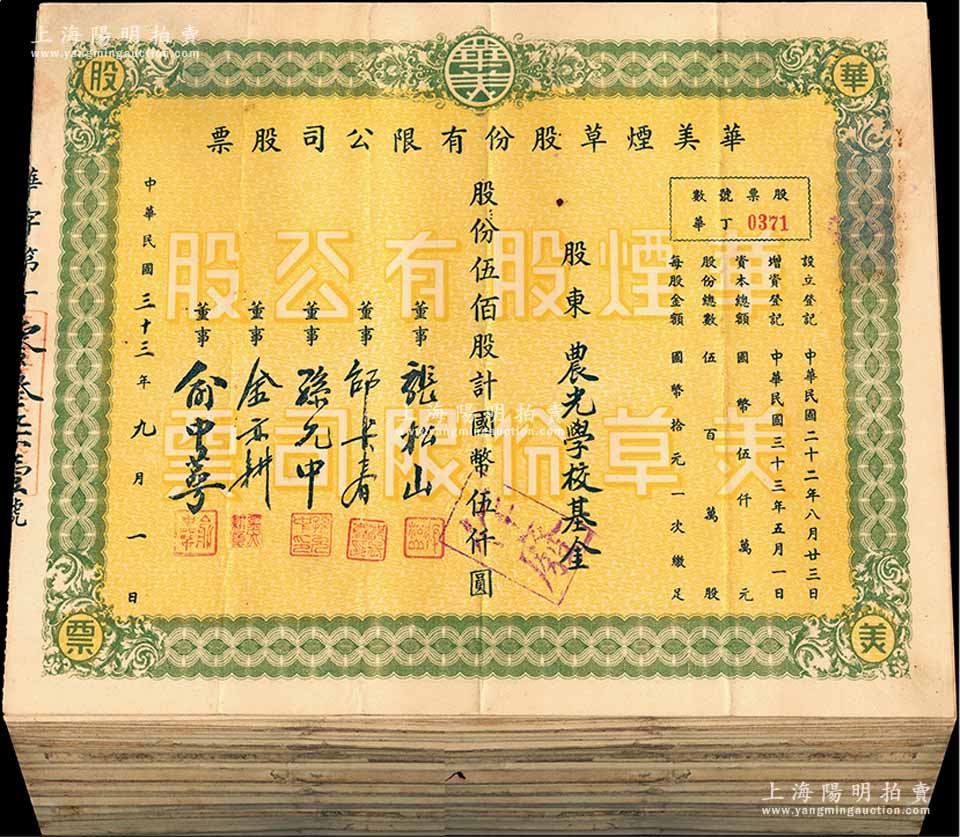 上海陽明拍賣
www.yangmingauction.com
股
華美
華
華美煙草股份有限公司股票
股票號數
華丁 0371
設立登記 中華民國二十二年八月廿三日
增資登記 中華民國三十三年五月一日
資本總額 國幣伍仟萬元
股份總數 伍百萬股
每股金額 國幣拾元一次繳足
股東 農光學校基金
股份伍佰股計國幣伍仟圓
董事 張松山
董事
董事 孫允中
董事 金宗耕
董事 俞中萼
中華民國三十三年九月一日
華煙股有公股
美草份限司票
票
美
上海陽明拍賣
www.yangmingauction.com